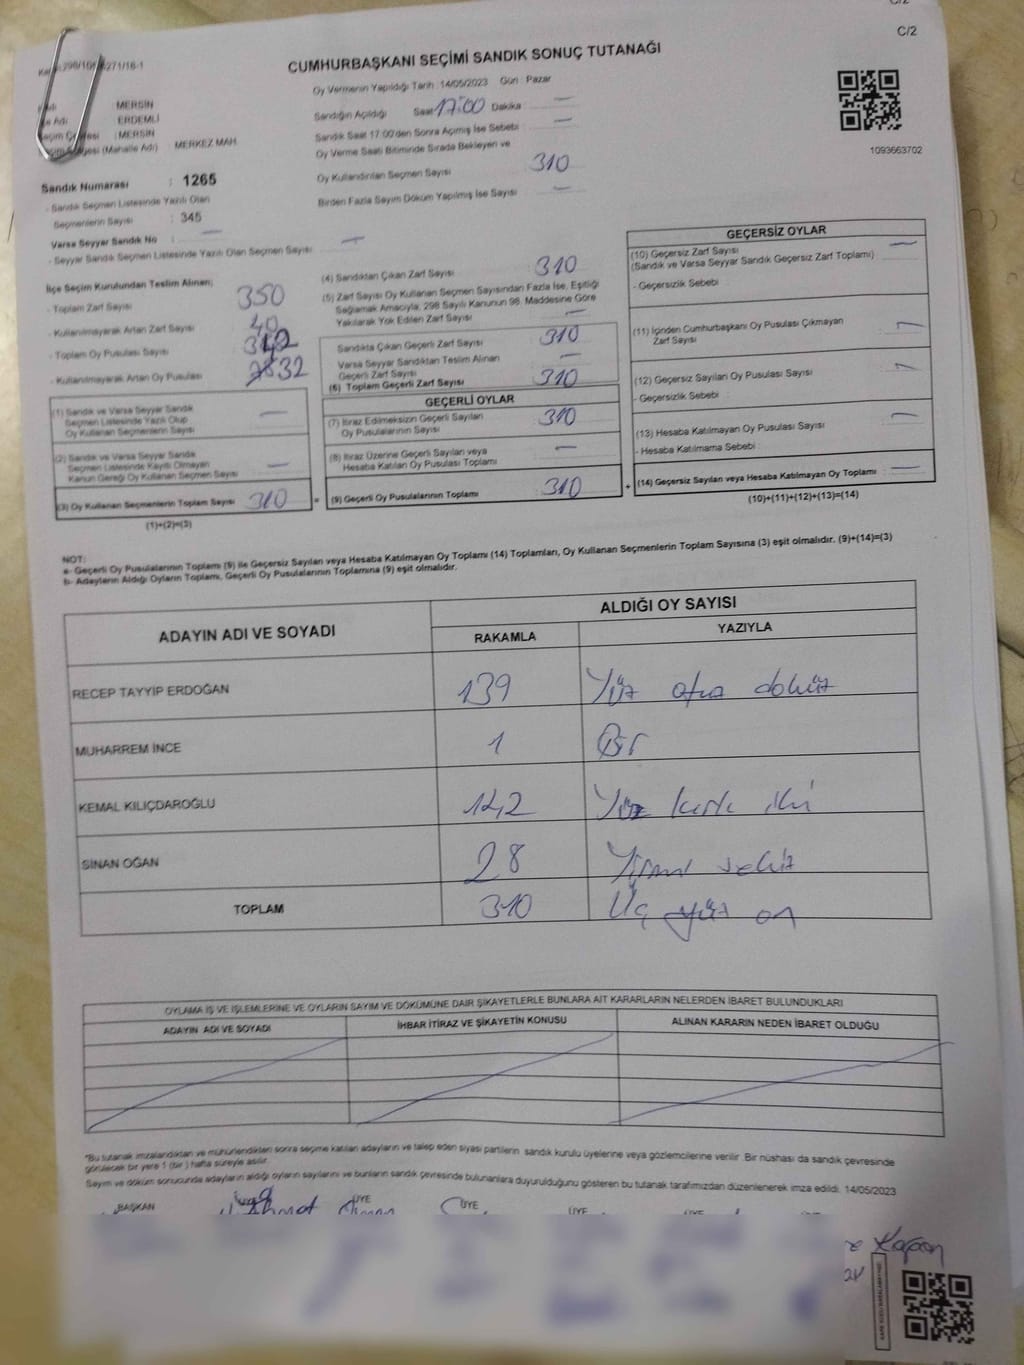 C/2
C/2
CUMHURBAŞKANI SEÇİMİ SANDIK SONUÇ TUTANAĞI
Oy Vermenin Yapıldığı Tarih : 14/05/2023 Gün : Pazar
MERSİN
ERDEMLİ
: MERSİN
(Mahalle Adı) : MERKEZ MAH.
Sandık Numarası : 1265
- Sandık Seçmen Listesinde Yazılı Olan
Seçmenlerin Sayısı : 345
Varsa Seyyar Sandık No : —
- Seyyar Sandık Seçmen Listesinde Yazılı Olan Seçmen Sayısı : —
Sandığın Açıldığı Saat 17:00 Dakika : —
Sandık Saat 17:00'den Sonra Açılmış İse Sebebi : —
Oy Verme Saati Bitiminde Sırada Bekleyen ve
Oy Kullandırılan Seçmen Sayısı : 310
Birden Fazla Sayım Döküm Yapılmış İse Sayısı : —
1093663702
İlçe Seçim Kurulundan Teslim Alınan;
- Toplam Zarf Sayısı 350
- Kullanılmayarak Artan Zarf Sayısı 40
- Toplam Oy Pusulası Sayısı 342
- Kullanılmayarak Artan Oy Pusulası 32
(1) Sandık ve Varsa Seyyar Sandık
Seçmen Listesinde Yazılı Olup
Oy Kullanan Seçmenlerin Sayısı —
(2) Sandık ve Varsa Seyyar Sandık
Seçmen Listesinde Kayıtlı Olmayan
Kanun Gereği Oy Kullanan Seçmen Sayısı —
(3) Oy Kullanan Seçmenlerin Toplam Sayısı 310
(1)+(2)=(3)
(4) Sandıktan Çıkan Zarf Sayısı : 310
(5) Zarf Sayısı Oy Kullanan Seçmen Sayısından Fazla İse, Eşitliği
Sağlamak Amacıyla, 298 Sayılı Kanunun 98. Maddesine Göre
Yakılarak Yok Edilen Zarf Sayısı : —
Sandıkta Çıkan Geçerli Zarf Sayısı : 310
Varsa Seyyar Sandıktan Teslim Alınan
Geçerli Zarf Sayısı : —
(6) Toplam Geçerli Zarf Sayısı : 310
GEÇERLİ OYLAR
(7) İtiraz Edilmeksizin Geçerli Sayılan
Oy Pusulalarının Sayısı : 310
(8) İtiraz Üzerine Geçerli Sayılan veya
Hesaba Katılan Oy Pusulası Toplamı : —
= (9) Geçerli Oy Pusulalarının Toplamı : 310
GEÇERSİZ OYLAR
(10) Geçersiz Zarf Sayısı
(Sandık ve Varsa Seyyar Sandık Geçersiz Zarf Toplamı) : —
- Geçersizlik Sebebi :
(11) İçinden Cumhurbaşkanı Oy Pusulası Çıkmayan
Zarf Sayısı : —
(12) Geçersiz Sayılan Oy Pusulası Sayısı : —
- Geçersizlik Sebebi :
(13) Hesaba Katılmayan Oy Pusulası Sayısı : —
- Hesaba Katılmama Sebebi :
+ (14) Geçersiz Sayılan veya Hesaba Katılmayan Oy Toplamı : —
(10)+(11)+(12)+(13)=(14)
NOT:
a- Geçerli Oy Pusulalarının Toplamı (9) ile Geçersiz Sayılan veya Hesaba Katılmayan Oy Toplamı (14) Toplamları, Oy Kullanan Seçmenlerin Toplam Sayısına (3) eşit olmalıdır. (9)+(14)=(3)
b- Adayların Aldığı Oyların Toplamı, Geçerli Oy Pusulalarının Toplamına (9) eşit olmalıdır.
ADAYIN ADI VE SOYADI
ALDIĞI OY SAYISI
RAKAMLA YAZIYLA
RECEP TAYYİP ERDOĞAN 139 Yüz otuz dokuz
MUHARREM İNCE 1 Bir
KEMAL KILIÇDAROĞLU 142 Yüz kırk iki
SİNAN OĞAN 28 Yirmi sekiz
TOPLAM 310 Üç yüz on
OYLAMA İŞ VE İŞLEMLERİNE VE OYLARIN SAYIM VE DÖKÜMÜNE DAİR ŞİKAYETLERLE BUNLARA AİT KARARLARIN NELERDEN İBARET BULUNDUKLARI
ADAYIN ADI VE SOYADI İHBAR İTİRAZ VE ŞİKAYETİN KONUSU ALINAN KARARIN NEDEN İBARET OLDUĞU
*Bu tutanak imzalandıktan ve mühürlendikten sonra seçime katılan adayların ve talep eden siyasi partilerin sandık kurulu üyelerine veya gözlemcilerine verilir. Bir nüshası da sandık çevresinde
görülecek bir yere 1 (bir) hafta süreyle asılır.
Sayım ve döküm sonucunda adayların aldığı oyların sayılarını ve bunların sandık çevresinde bulunanlara duyurulduğunu gösteren bu tutanak tarafımızdan düzenlenerek imza edildi. 14/05/2023
BAŞKAN ÜYE ÜYE ÜYE ÜYE